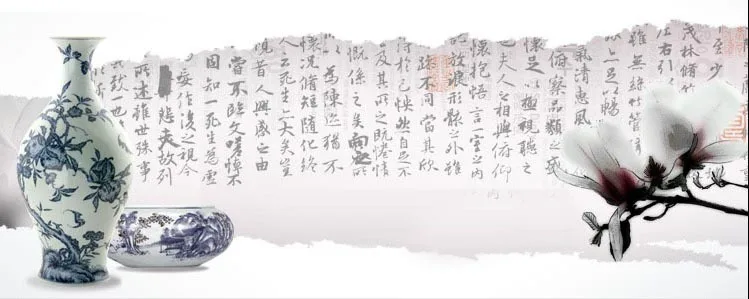 至少
茂林脩竹
左右引以
雖無絲竹管弦
足以暢
氣清惠風
俯察品類之盛
懷足以極視聽之
也夫人之相與俯仰
懷抱悟言一室之內
託放浪形骸之外雖
躁不同當其欣
得於己怏然自足不
及其所之既惓情
慨係之矣向之所
為陳迹猶不
懷況脩短隨化終
人云死生亦大矣豈
昔人興感之由
嘗不臨文嗟悼不
固知一死生為虛
妄作後之視今
悲夫故列
所述雖世殊事
致一也